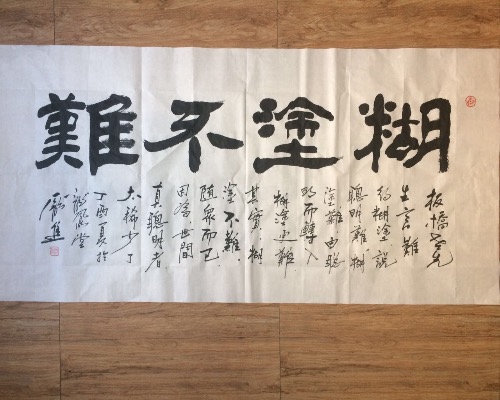 糊塗不難
板橋先
生言難
糊塗說
聰明難糊
塗難由聰
明而轉入
糊塗更難
其實糊
塗不難
随衆而已
因為世間
真聰明者
太稀少了
丁酉夏於